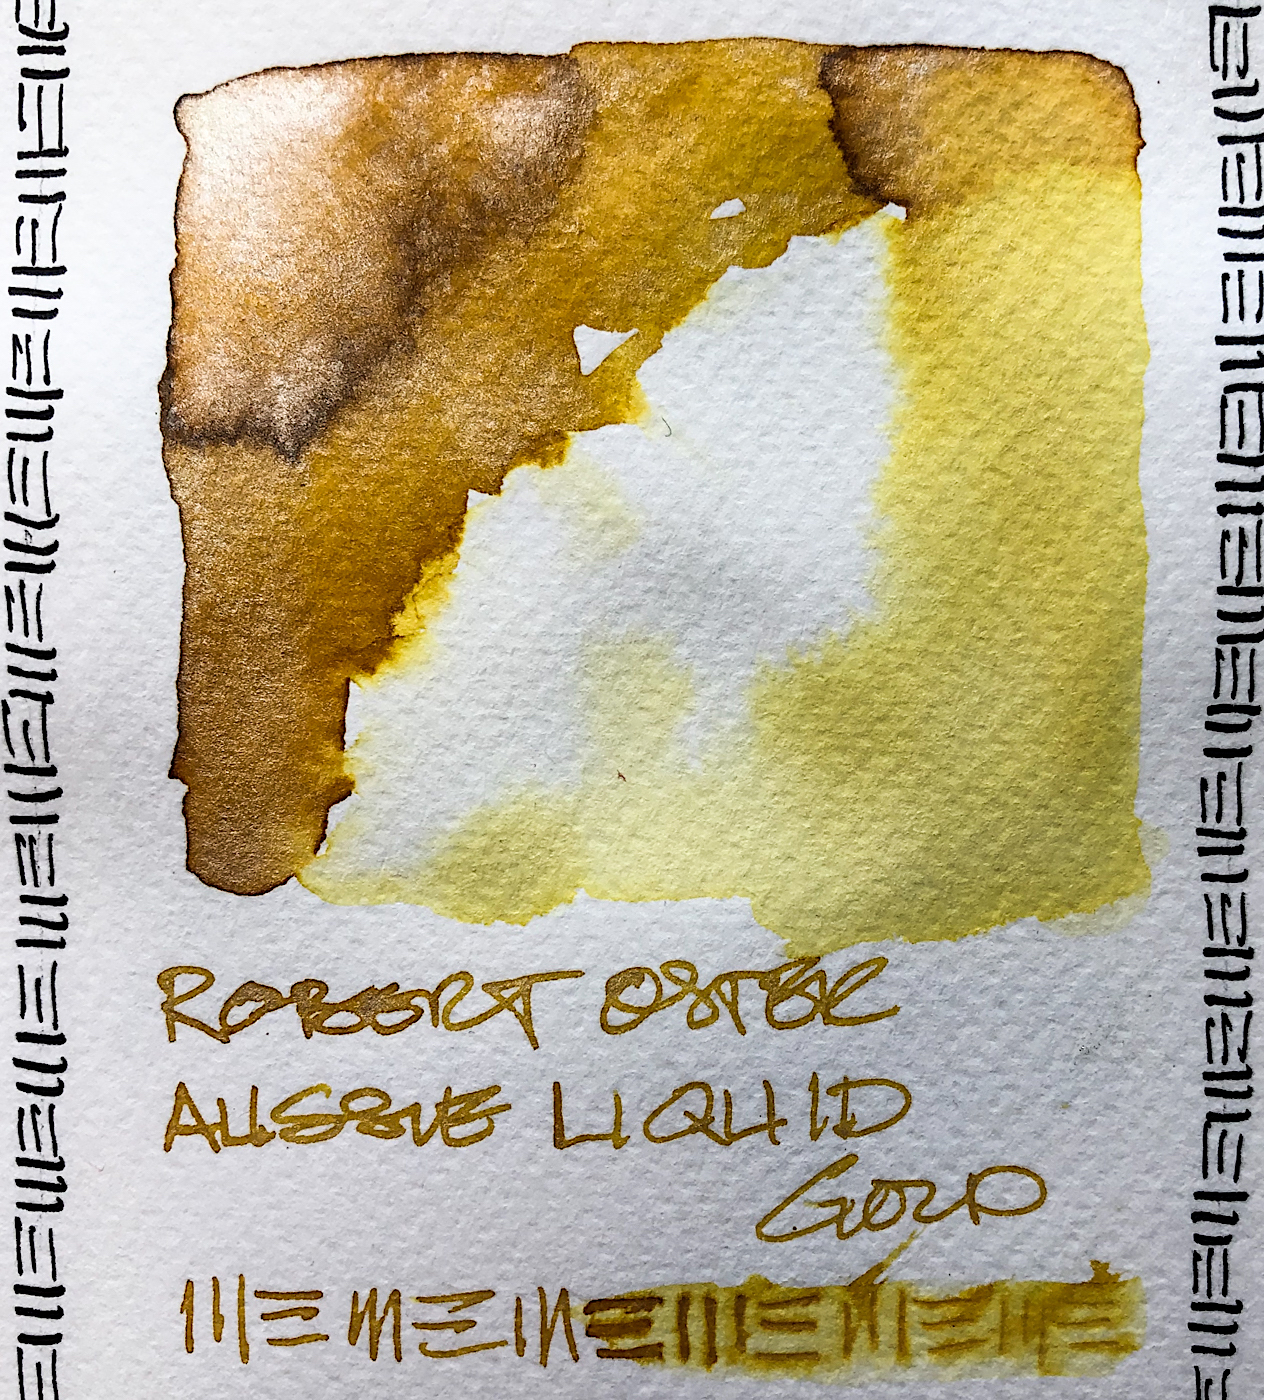 ROBERT OSTER
AUSSIE LIQUID
GOLD